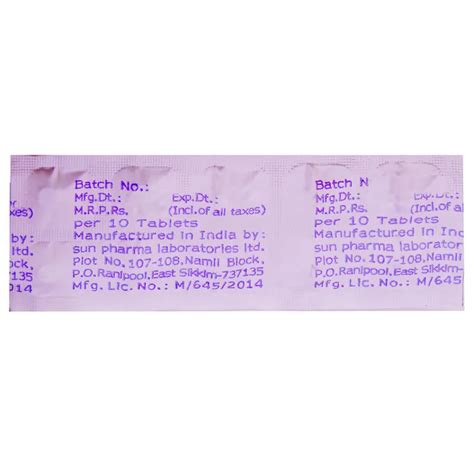 Batch No.: Batch N
Mfg.Dt.: Exp.Dt.: Mfg.Dt.: Exp.Dt.:
M.R.P.Rs. (Incl.of all taxes) M.R.P.Rs. (Incl.of a
xes) per 10 Tablets per 10 Tablets
Manufactured in India by: Manufactured in Ind
ltd. sun pharma laboratories ltd. sun pharma laborator
Plot No.107-108,Namli Block, Plot No.107-108,Nam
P.O.Ranipool,East Sikkim-737135 P.O.Ranipool,East Sik
Mfg. Lic. No.: M/645/2014 Mfg. Lic. No.: M/645